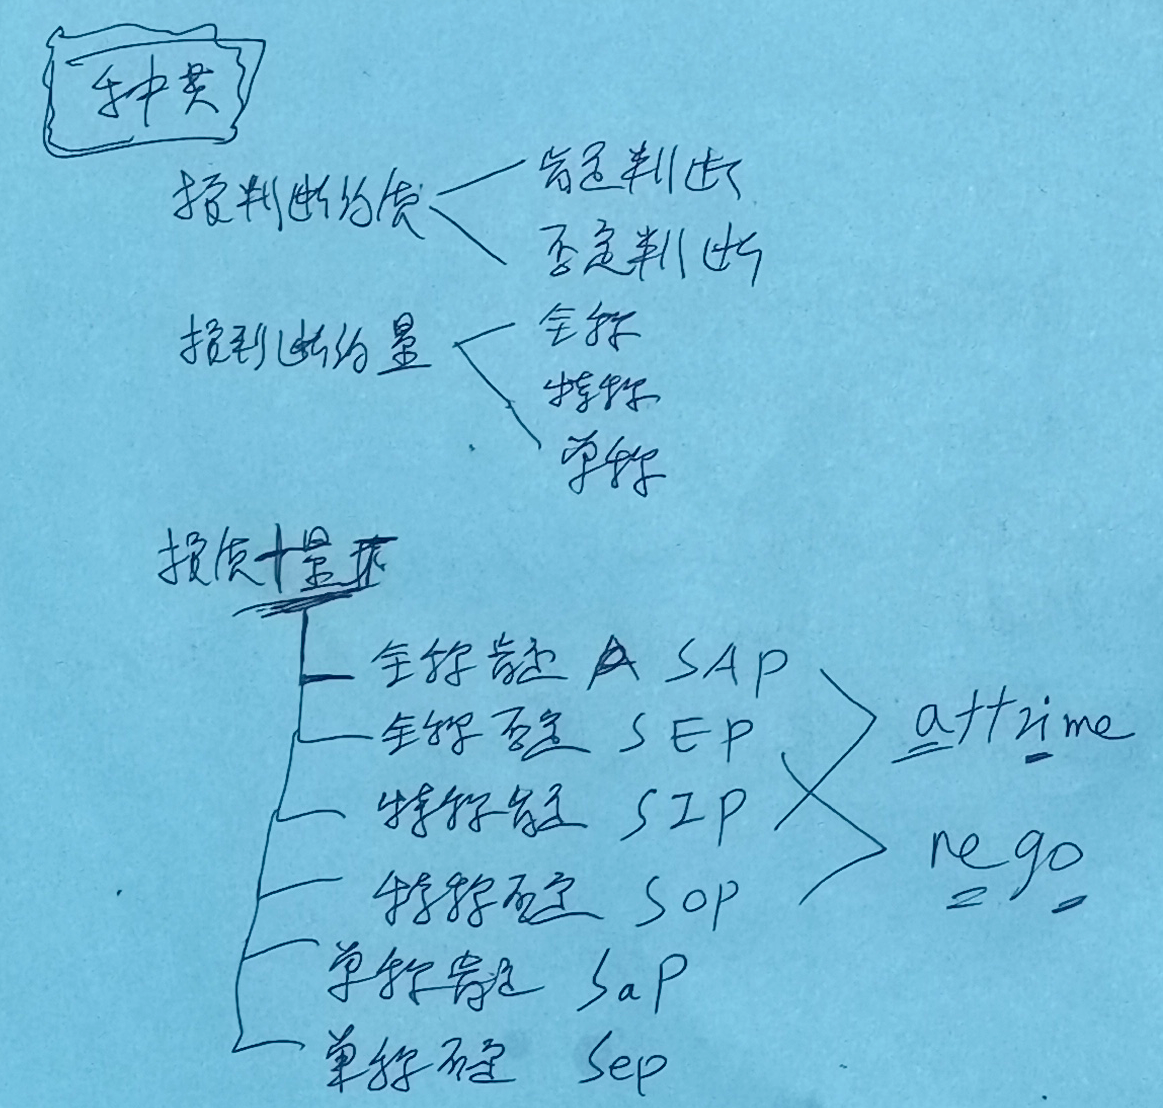 种类
按判断的质
肯定判断
否定判断
按判断的量
全称
特称
单称
按质+量
全称肯定 A SAP
全称否定 SEP
特称肯定 SIP
特称否定 SOP
单称肯定 SaP
单称否定 Sep
attrime
nego